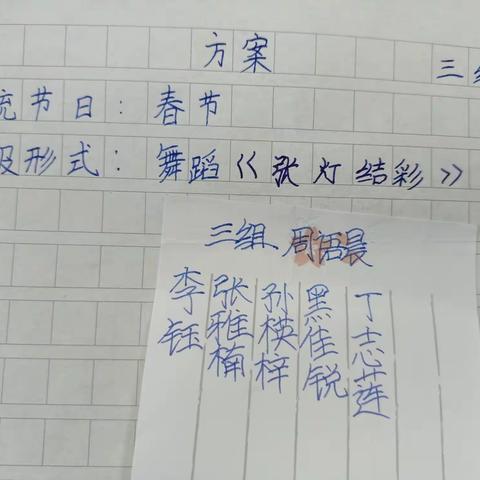 方案
三组
统节日：春节
及形式：舞蹈《张灯结彩》
三组 周语晨
李钰
张雅楠
孙楧梓
黑佳锐
丁志莲